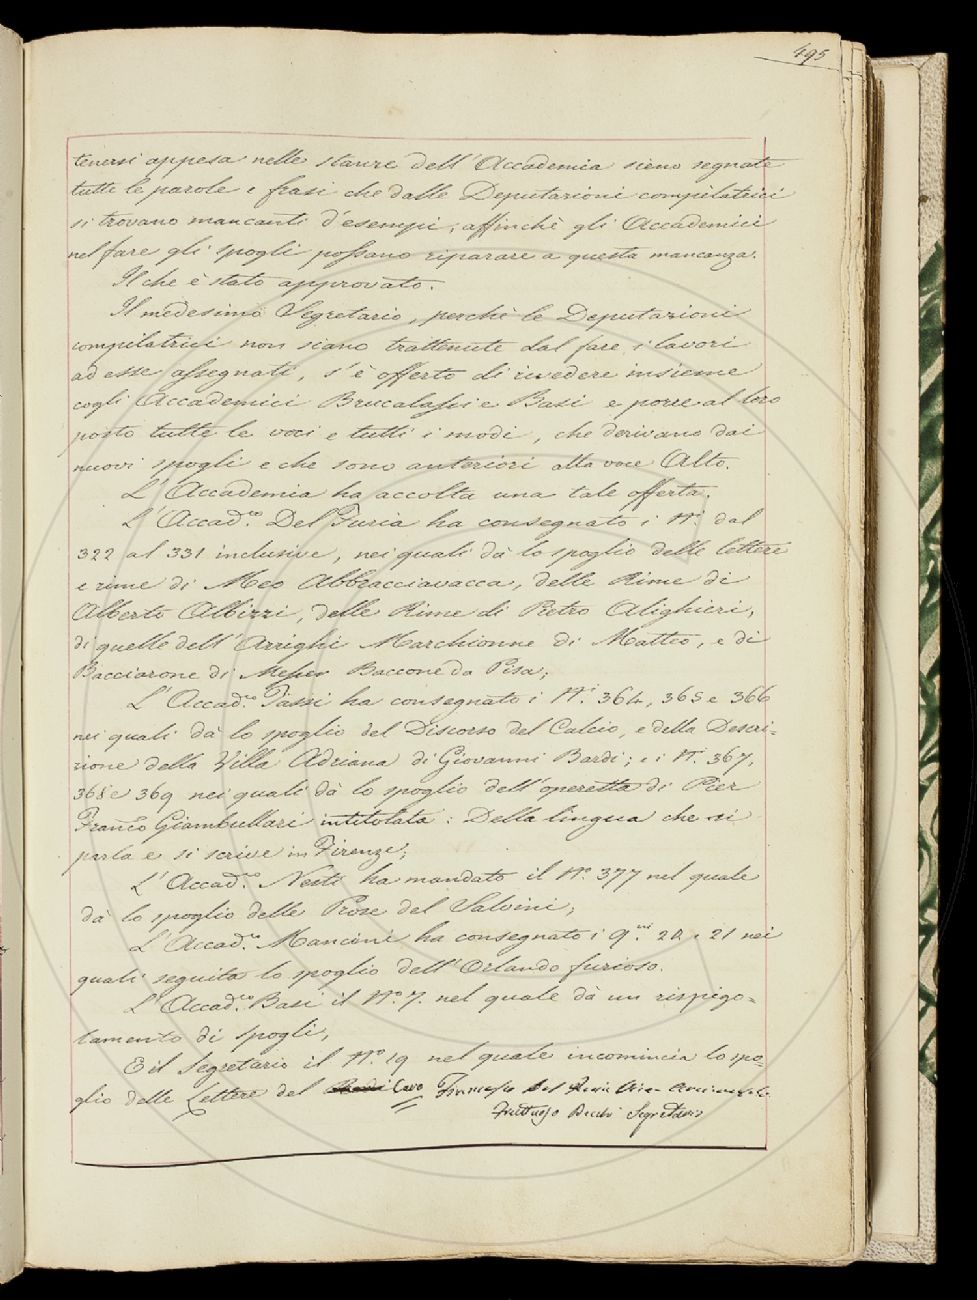 495
tenersi appesa nelle stanze dell'Accademia sieno segnate
tutte le parole e frasi che dalle Deputazioni compilatrici
si trovano mancanti d'esempi, affinchè gli Accademici
nel fare gli spogli possano riparare a questa mancanza.
Il che è stato approvato.
Il medesimo Segretario, perchè le Deputazioni
compilatrici non siano trattenute dal fare i lavori
ad esse assegnati, s'è offerto di rivedere insieme
cogli Accademici Brucalassi e Basi e porre al loro
posto tutte le voci e tutti i modi, che derivano dai
nuovi spogli e che sono anteriori alla voce Alto.
L'Accademia ha accolta una tale offerta.
L'Accad.co Del Furia ha consegnato i N.i dal
322 al 331 inclusive, nei quali dà lo spoglio delle lettere
e rime di Meo Abbracciavacca, delle Rime di
Alberto Albizzi, delle Rime di Pietro Alighieri,
di quelle dell'Arrighi Marchionne di Matteo, e di
Bacciarone di Messer Baccone da Pisa;
L'Accad.co Tassi ha consegnato i N.i 364, 365 e 366
nei quali dà lo spoglio del Discorso del Calcio, e della Descri-
zione della Villa Adriana di Giovanni Bardi; e i N.i 367,
368 e 369 nei quali dà lo spoglio dell'operetta di Pier
Franc.o Giambullari intitolata: Della lingua che si
parla e si scrive in Firenze;
L'Accad.co Nesti ha mandato il N.o 377 nel quale
dà lo spoglio delle Prose del Salvini;
L'Accad.co Mancini ha consegnato i q.ni 20 e 21 nei
quali seguita lo spoglio dell'Orlando furioso.
L'Accad.co Basi il N.o 7. nel quale dà un rispigo-
lamento di spogli,
E il Segretario il N.o 19 nel quale incomincia lo spo-
glio delle Lettere del Caro Francesco del Furia
Fruttuoso Becchi Segretario